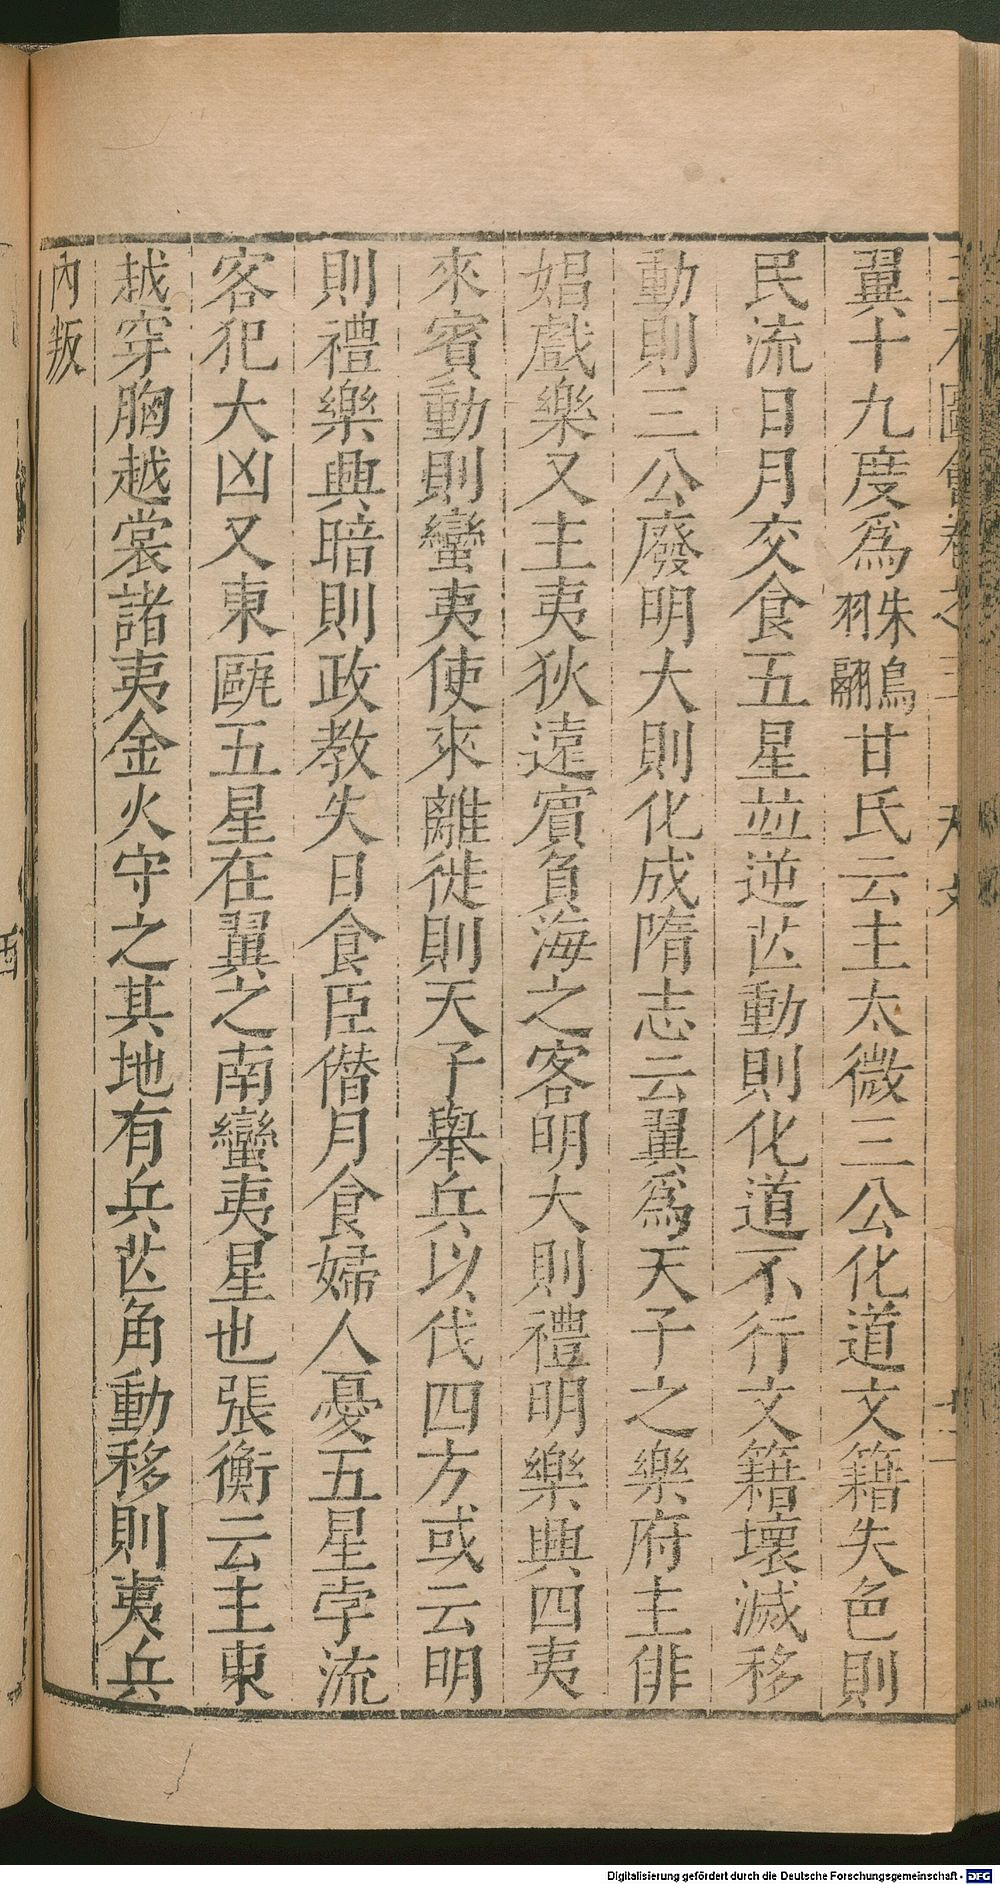 三才圖會卷之三 天文
翼十九度爲朱鳥羽翮甘氏云主太微三公化道文籍失色則
民流日月交食五星並逆芒動則化道不行文籍壞滅移
動則三公廢明大則化成隋志云翼爲天子之樂府主俳
娼戲樂又主夷狄遠賓負海之客明大則禮明樂興四夷
來賓動則蠻夷使來離徙則天子舉兵以伐四方或云明
則禮樂興暗則政教失日食臣僭月食婦人憂五星孛流
客犯大凶又東甌五星在翼之南蠻夷星也張衡云主東
越穿胸越裳諸夷金火守之其地有兵芒角動移則夷兵
內叛
Digitalisierung gefördert durch die Deutsche Forschungsgemeinschaft - DFG